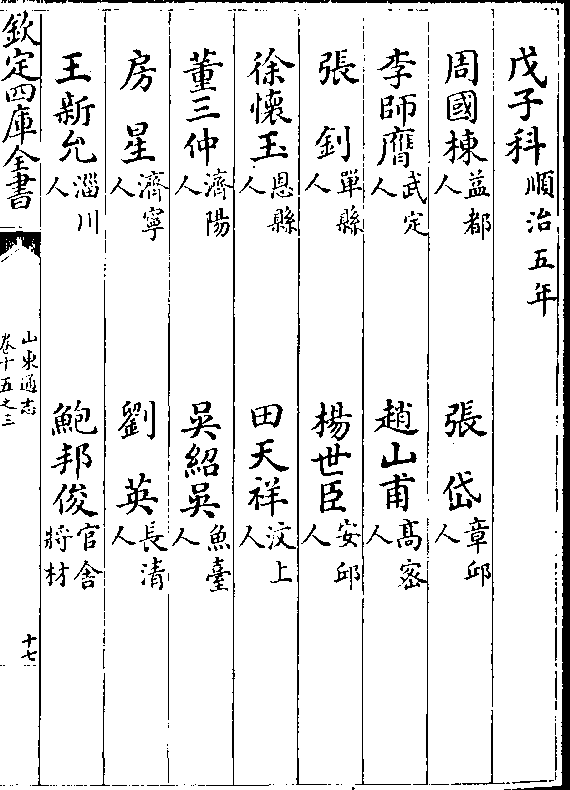 戊子科順治五年
周國棟益都人　張岱章邱人
李師膺武定人　趙山甫高密人
張釗單縣人　楊世臣安邱人
徐懷玉恩縣人　田天祥汶上人
董三仲濟陽人　吳紹吳魚臺人
房星濟寧人　劉英長清人
王新允淄川人　鮑邦俊官舍將材
欽定四庫全書
山東通志
卷十五之三
十七